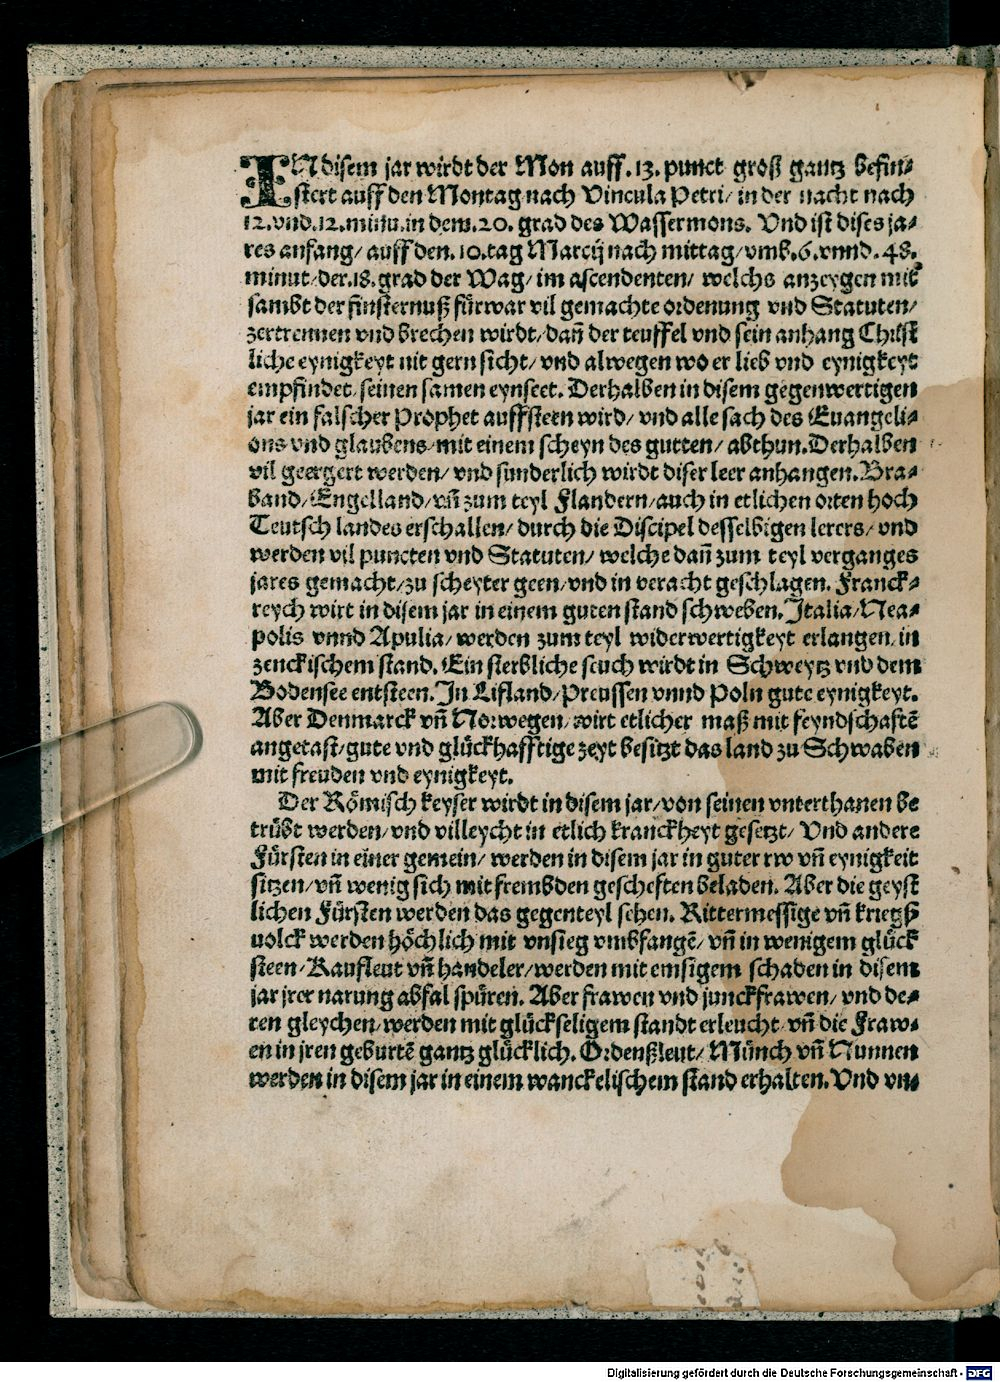 IN disem jar wirdt der Mon auff .13. punct groß gantz befin⸗
stert auff den Montag nach Vincula Petri/ in der nacht nach
12.vnd.12.minu.in dem.20. grad des Wassermons. Vnd ist dises ja⸗
res anfang/ auff den.10.tag Marcij nach mittag/vmb.6.vnnd.48.
minut/der.18.grad der Wag/ im ascendenten/ welchs anzeygen mit
sambt der finsternuß fürwar vil gemachte ordenung vnd Statuten/
zertrennen vnd brechen wirdt/dañ der teuffel vnd sein anhang Christ
liche eynigkeyt nit gern sicht/ vnd alwegen wo er lieb vnd eynigkeyt
empfindet/seinen samen eynseet. Derhalben in disem gegenwertigen
jar ein falscher Prophet auffsteen wird/ vnd alle sach des Euangeli⸗
ons vnd glaubens/mit einem scheyn des gutten/ abthun.Derhalben
vil geergert werden/ vnd sunderlich wirdt diser leer anhangen. Bra⸗
band/Engelland/vñ zum teyl Flandern/auch in etlichen orten hoch
Teutsch landes erschallen/ durch die Discipel desselbigen lerers/ vnd
werden vil puncten vnd Statuten/ welche dañ zum teyl verganges
jares gemacht/zu scheyter geen/vnd in veracht geschlagen. Franck⸗
reych wirt in disem jar in einem guten stand schweben. Italia/Nea⸗
polis vnnd Apulia/ werden zum teyl widerwertigkeyt erlangen/in
zenckischem stand. Ein sterbliche seuch wirdt in Schweytz vnd dem
Bodensee entsteen. In Lifland/Preussen vnnd Poln gute eynigkeyt.
Aber Denmarck vñ Norwegen/wirt etlicher maß mit feyndschaftē
angetast/gute vnd glückhafftige zeyt besitzt das land zu Schwaben
mit freuden vnd eynigkeyt.
Der Römisch keyser wirdt in disem jar/von seinen vnterthanen be
trübt werden/vnd villeycht in etlich kranckheyt gesetzt/ Vnd andere
Fürsten in einer gemein/ werden in disem jar in guter rw vñ eynigkeit
sitzen/vñ wenig sich mit frembden gescheften beladen. Aber die geyst
lichen Fürsten werden das gegenteyl sehen. Rittermessige vñ kriegß
uolck werden höchlich mit vnsieg vmbfangē/ vñ in wenigem glück
steen/Kaufleut vñ handeler/werden mit emsigem schaden in disem
jar jrer narung abfal spüren. Aber frawen vnd junckfrawen/ vnd de⸗
ren gleychen/werden mit glückseligem standt erleucht/vñ die Fraw⸗
en in jren geburtē gantz glücklich. Ordenßleut/ Münch vñ Nunnen
werden in disem jar in einem wanckelischem stand erhalten. Vnd vn⸗
Digitalisierung gefördert durch die Deutsche Forschungsgemeinschaft - DFG